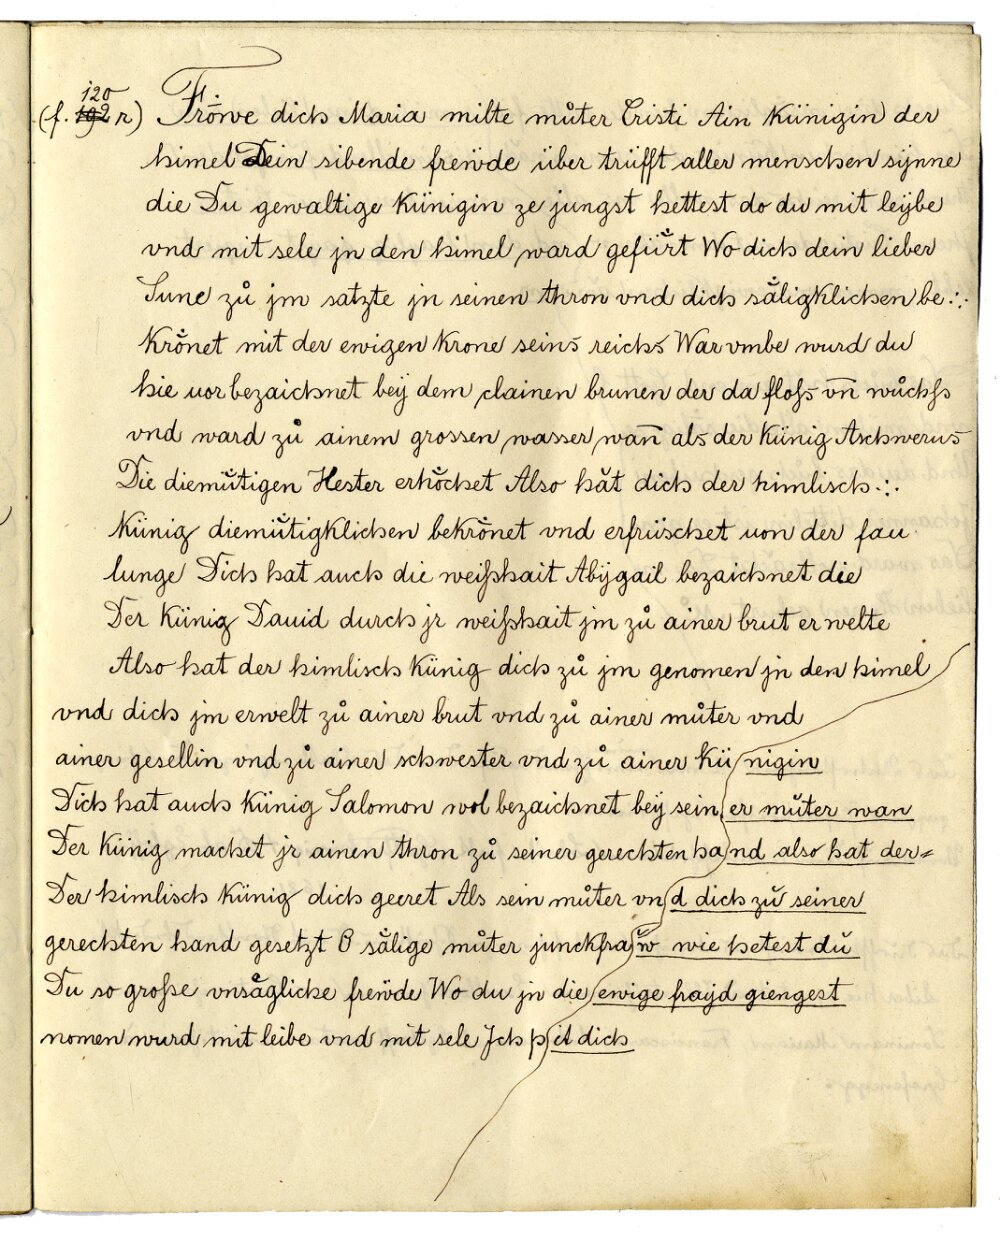 120
(f. 192 r) Fröwe dich Maria milte můter Cristi Ain Künigin der
himel Dein sibende frewde über trüfft aller menschen sÿnne
die Du gewaltige Künigin ze jungst hettest do du mit leÿbe
vnd mit sele jn den himel ward gefüͤrt Wo dich dein lieber
Sune zů jm satzte jn seinen thron vnd dich säligklichen be∴
krönet mit der ewigen krone seins reichs Warvmbe wurd du
hie uor bezaichnet beÿ dem clainen brunen der da floss vn̄ wůchss
vnd ward zů ainem grossen wasser wan̄ als der Künig Aschwerus
Die diemuͤtigen Hester erhöchet Also hät dich der himlisch∴
Künig diemuͤtigklichen bekrönet vnd erfrüschet uon der fau
lunge Dich hat auch die weißhait Abÿgail bezaichnet die
Der Künig Dauid durch jr weißhait jm zů ainer brut erwelte
Also hat der himlisch Künig dich zů jm genomen jn den himel
vnd dich jm erwelt zů ainer brut vnd zů ainer můter vnd
ainer gesellin vnd zů ainer schwester vnd zů ainer Kü nigin
Dich hat auch Künig Salomon wol bezaichnet beÿ sein er můter wan
Der Künig machet jr ainen thron zů seiner gerechten ha nd also hat der=
Der himlisch Künig dich geeret Als sein můter vn d dich zů seiner
gerechten hand gesetzt O sälige můter junckfra w wie hetest du
Du so große vnsägliche frewde Wo du jn die ewige frayd giengest
nomen wurd mit leibe vnd mit sele Jch p it dich